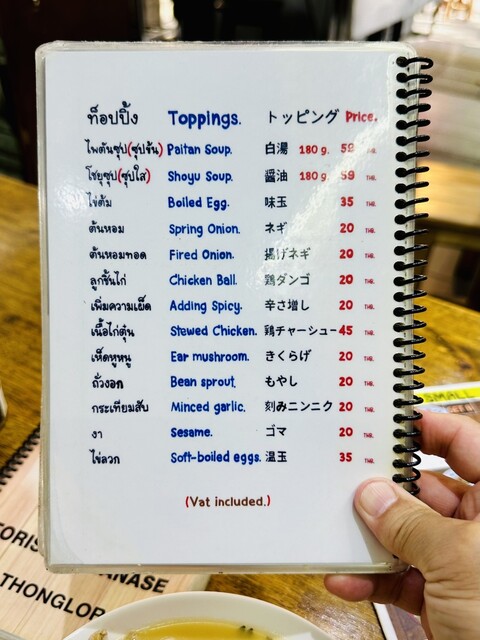 ท็อปปิ้ง Toppings. トッピング Price.
ไพตันซุป(ซุปข้น) Paitan Soup. 白湯 180 g. 59 THB.
โชยุซุป(ซุปใส) Shoyu Soup. 醤油 180 g. 59 THB.
ไข่ต้ม Boiled Egg. 味玉 35 THB.
ต้นหอม Spring Onion. ネギ 20 THB.
ต้นหอมทอด Fired Onion. 揚げネギ 20 THB.
ลูกชิ้นไก่ Chicken Ball. 鶏ダンゴ 20 THB.
เพิ่มความเผ็ด Adding Spicy. 辛さ増し 20 THB.
เนื้อไก่ตุ๋น Stewed Chicken. 鶏チャーシュー 45 THB.
เห็ดหูหนู Ear mushroom. きくらげ 20 THB.
ถั่วงอก Bean sprout. もやし 20 THB.
กระเทียมสับ Minced garlic. 刻みニンニク 20 THB.
งา Sesame. ゴマ 20 THB.
ไข่ลวก Soft-boiled eggs. 温玉 35 THB.
(Vat included.)
SMALL
THONGLOR